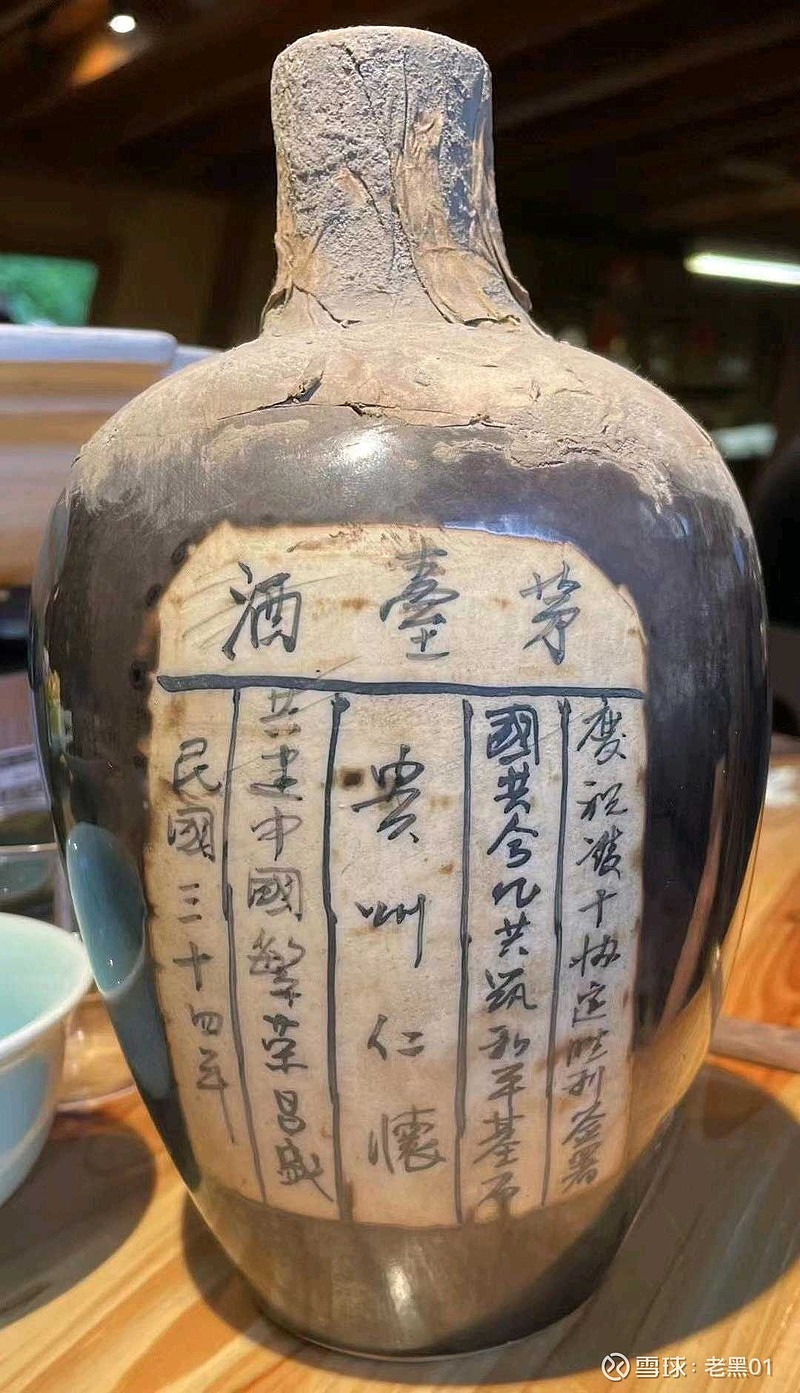 茅臺酒
慶祝雙十协定胜利签署
國共合作共筑和平基
貴州仁懷
共建中國繁荣昌盛
民國三十四年
雪球：老黑01